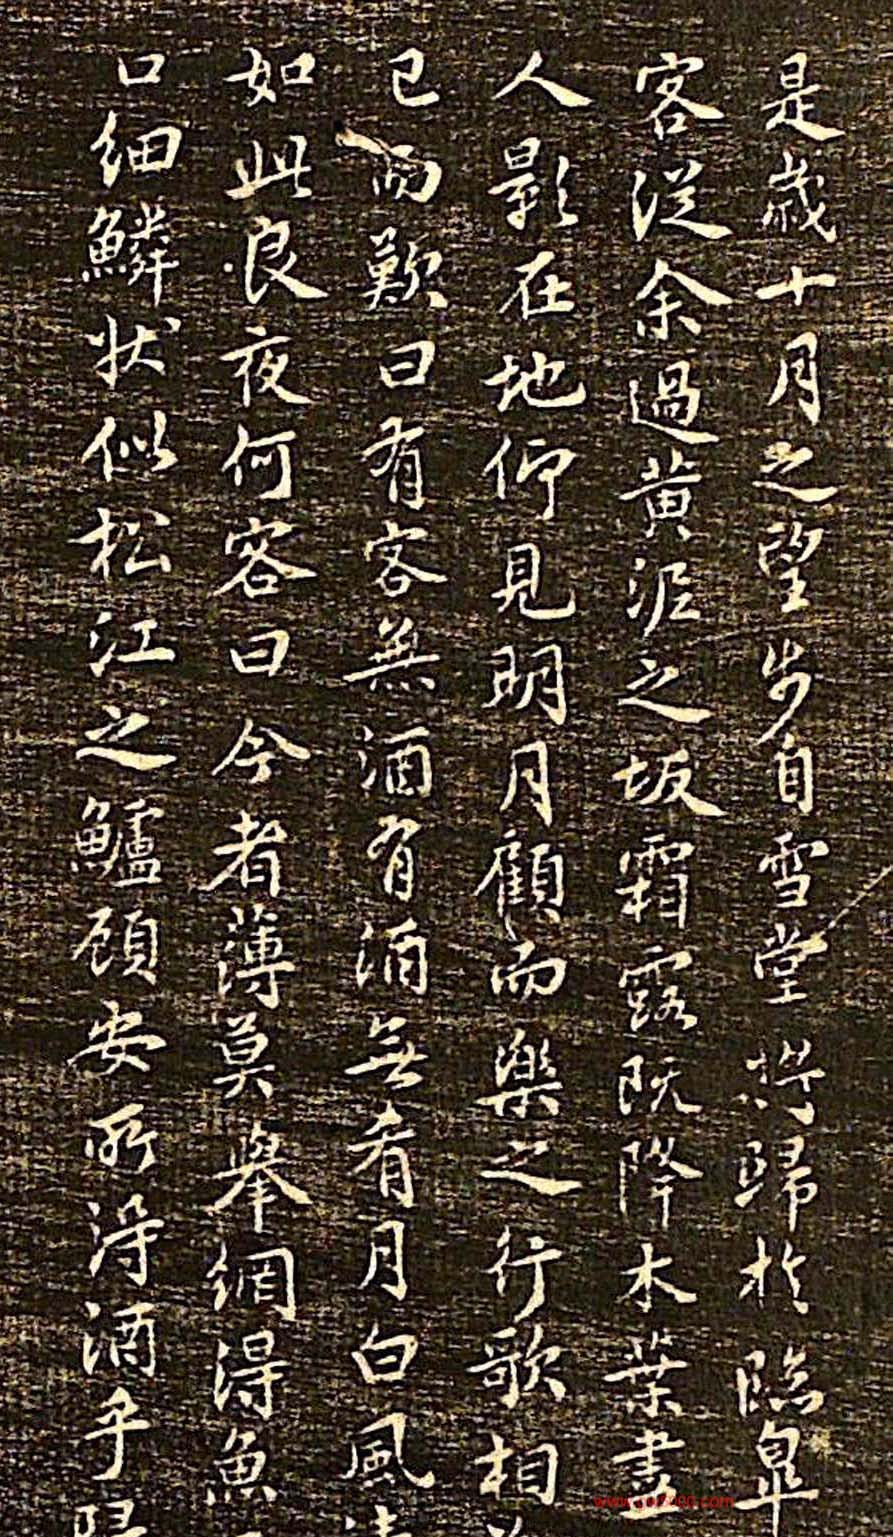 是歲十月之望步自雪堂將歸於臨皋
客從余過黃泥之坂霜露既降木葉盡
人影在地仰見明月顧而樂之行歌相
已而歎曰有客無酒有酒無肴月白風
如此良夜何客曰今者薄莫舉網得魚
口細鱗狀似松江之鱸顧安所得酒乎